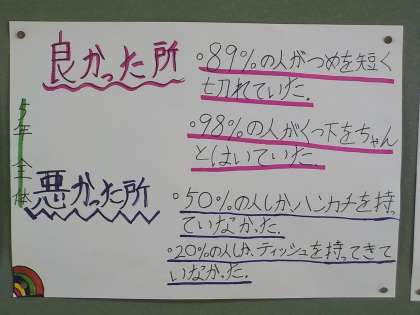 良かった所
。89%の人がつめを短く
切れていた.
。98%の人がくつ下をちゃん
とはいていた.
5年全体
悪かった所
。50%の人しかハンカチを持っ
ていなかった
。20%の人しか、ティッシュを持ってきて
いなかった.